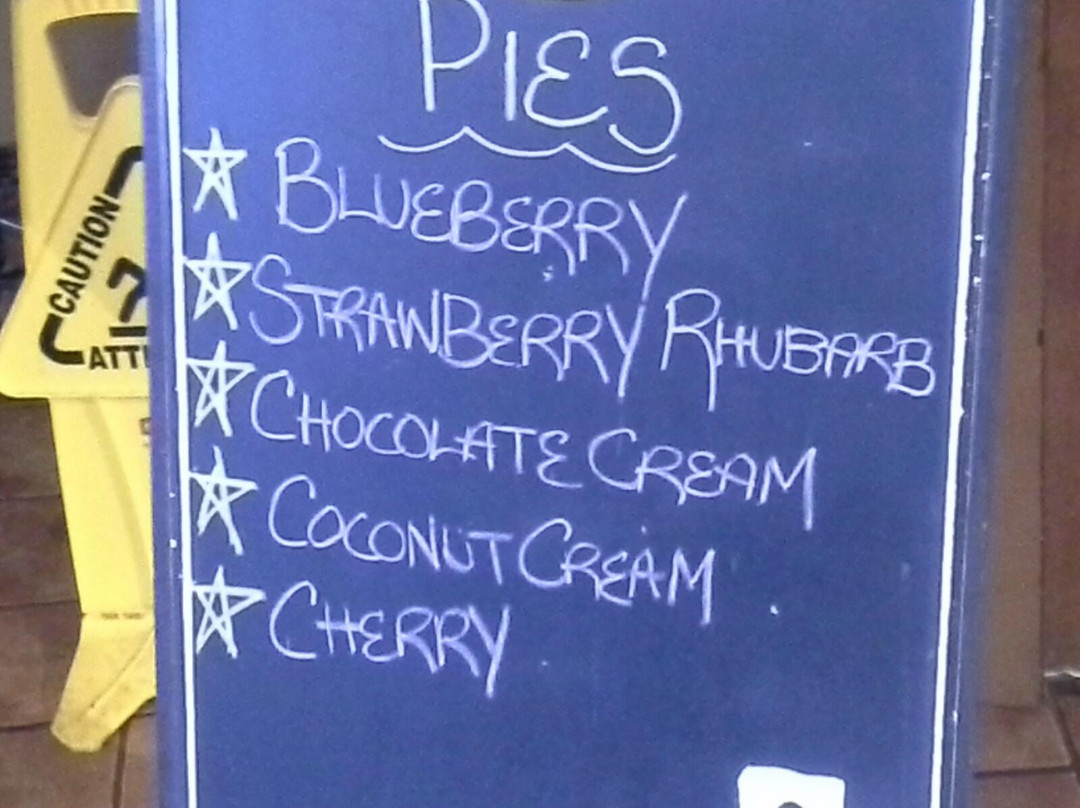 PIES
BLUEBERRY
STRAWBERRY RHUBARB
CHOCOLATE CREAM
COCONUT CREAM
CHERRY
CAUTION